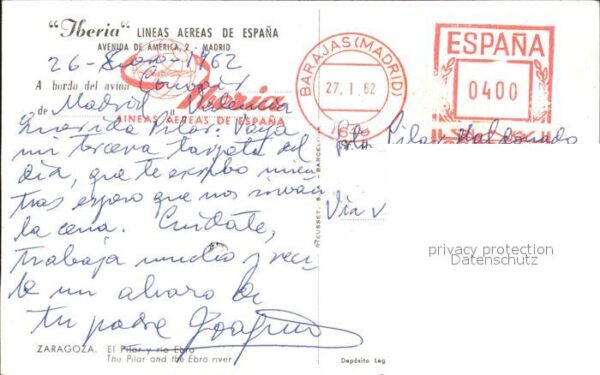 "Iberia" LINEAS AEREAS DE ESPAÑA
AVENIDA DE AMERICA, 2 - MADRID
26-Enero-1962
A bordo del avión Convair
de Madrid a Valencia
Iberia
LINEAS AEREAS DE ESPAÑA
BARAJAS (MADRID)
27. I. 62
ESPAÑA
0400
Querida Pilar: Vaya
mi tercera tarjeta del
día, que te escribo mien
tras espero que nos sirvan
la cena. Cuídate,
trabaja mucho y reci
be un abrazo de
tu padre Joaquin
Srta. Pilar Maldonado
Vía
privacy protection
Datenschutz
ZARAGOZA. El Pilar y río Ebro
The Pilar and the Ebro river
Depósito Leg